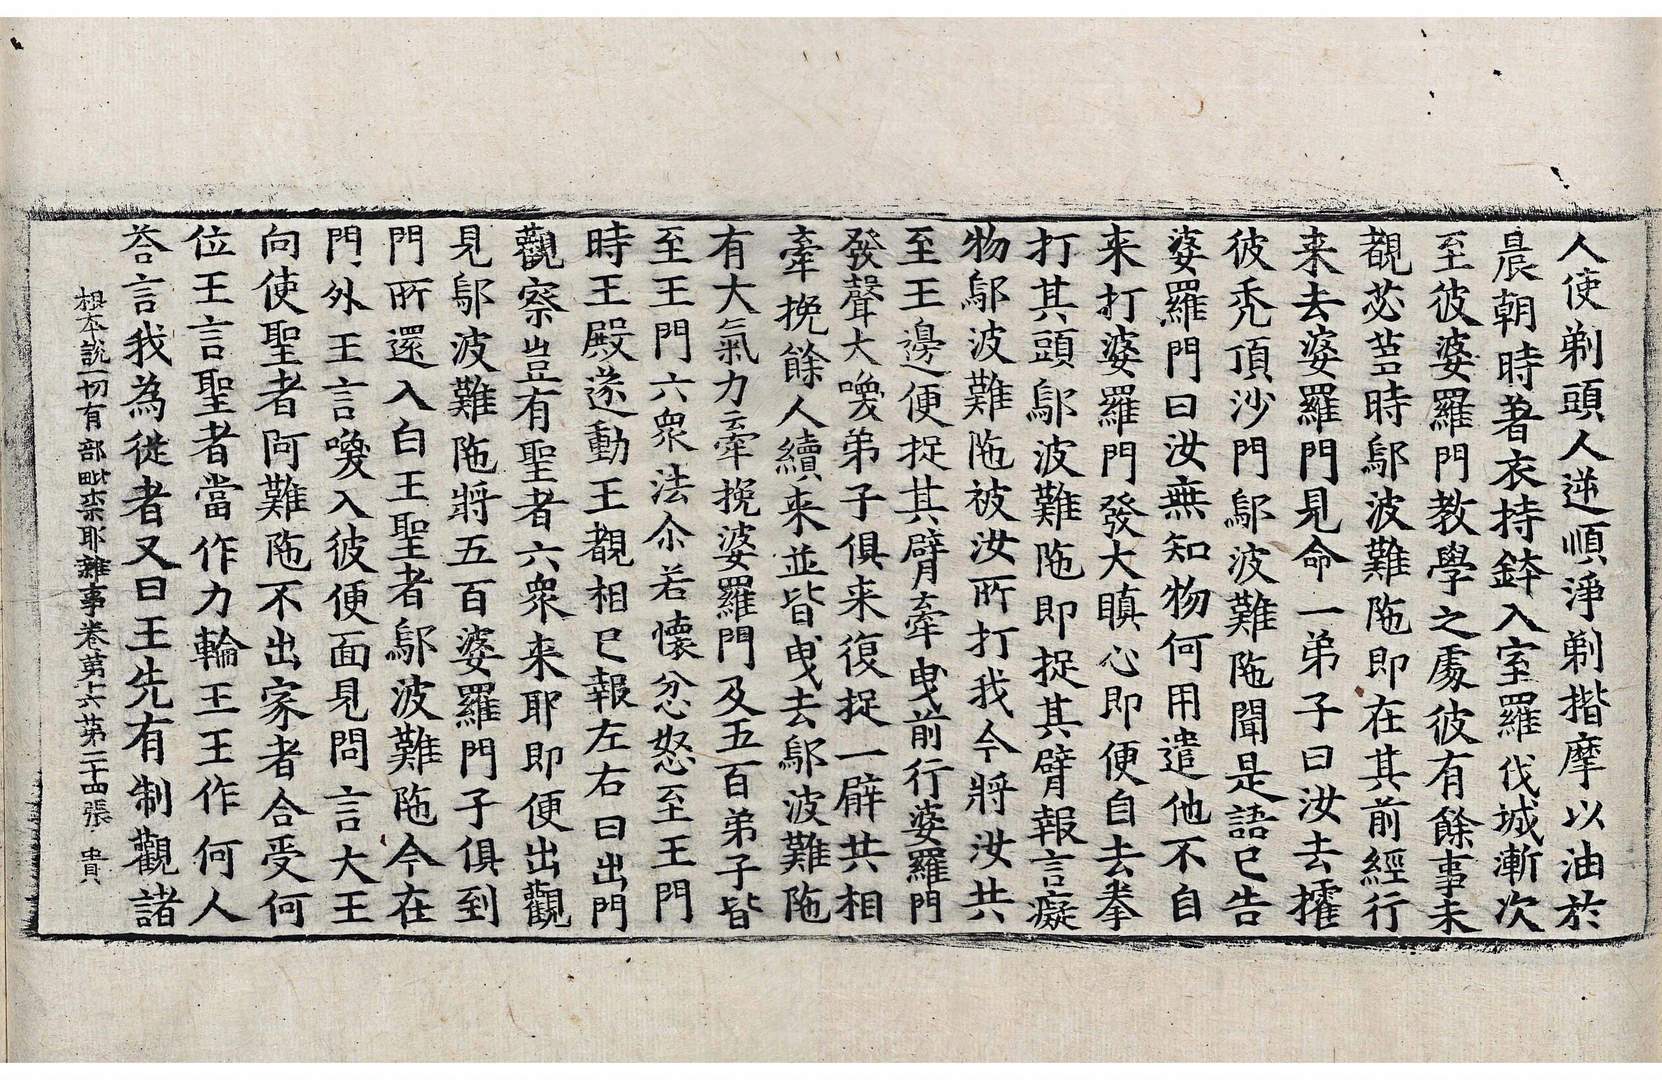 人使剃頭人逆順淨剃揩摩以油於
晨朝時著衣持鉢入室羅伐城漸次
至彼婆羅門教學之處彼有餘事未
覩苾芻時鄔波難陁即在其前經行
来去婆羅門見命一弟子曰汝去攉
彼禿頂沙門鄔波難陁聞是語已告
婆羅門曰汝無知物何用遣他不自
来打婆羅門發大瞋心即便自去拳
打其頭鄔波難陁即捉其臂報言癡
物鄔波難陁被汝所打我今將汝共
至王邊便捉其臂牽曳前行婆羅門
發聲大喚弟子俱来復捉一臂共相
牽挽餘人續来並皆曳去鄔波難陁
有大氣力云牽挽婆羅門及五百弟子皆
至王門六衆法尒若懷忿怒至王門
時王殿遂動王覩相已報左右曰出門
觀察豈有聖者六衆来耶即便出觀
見鄔波難陁將五百婆羅門子俱到
門所還入白王聖者鄔波難陁今在
門外王言喚入彼便面見問言大王
向使聖者阿難陁不出家者合受何
位王言聖者當作力輪王王作何人
荅言我為從者又曰王先有制觀諸
根本說一切有部毗柰耶雜事卷第六 第二十四張 貴